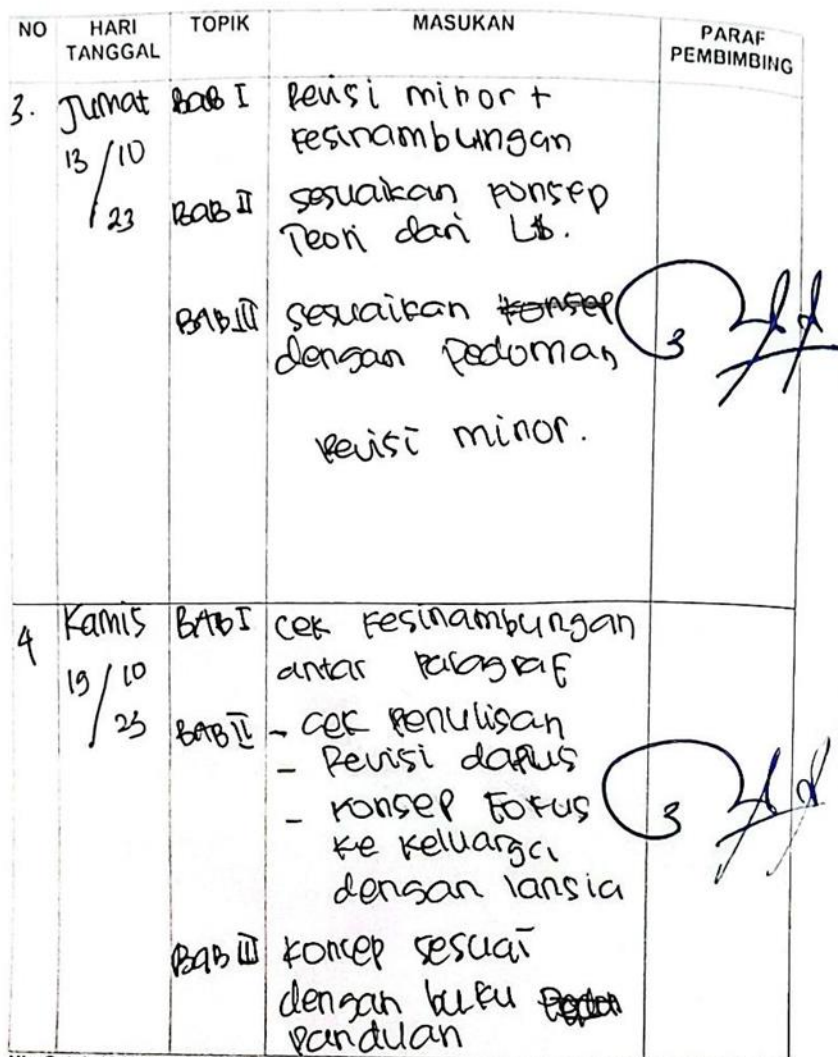 NO HARI TANGGAL TOPIK MASUKAN PARAF PEMBIMBING
3. Jumat BAB I Revisi minor +
13/10/23 kesinambungan
BAB II sesuaikan konsep
Teori dari LB.
BAB III sesuaikan konsep
dengan Pedoman
Revisi minor.
4 Kamis BAB I cek kesinambungan
19/10/23 antar paragraf
BAB II - cek penulisan
- Revisi dapus
- Konsep Fokus
ke keluarga
dengan lansia
BAB III konsep sesuai
dengan buku
panduan